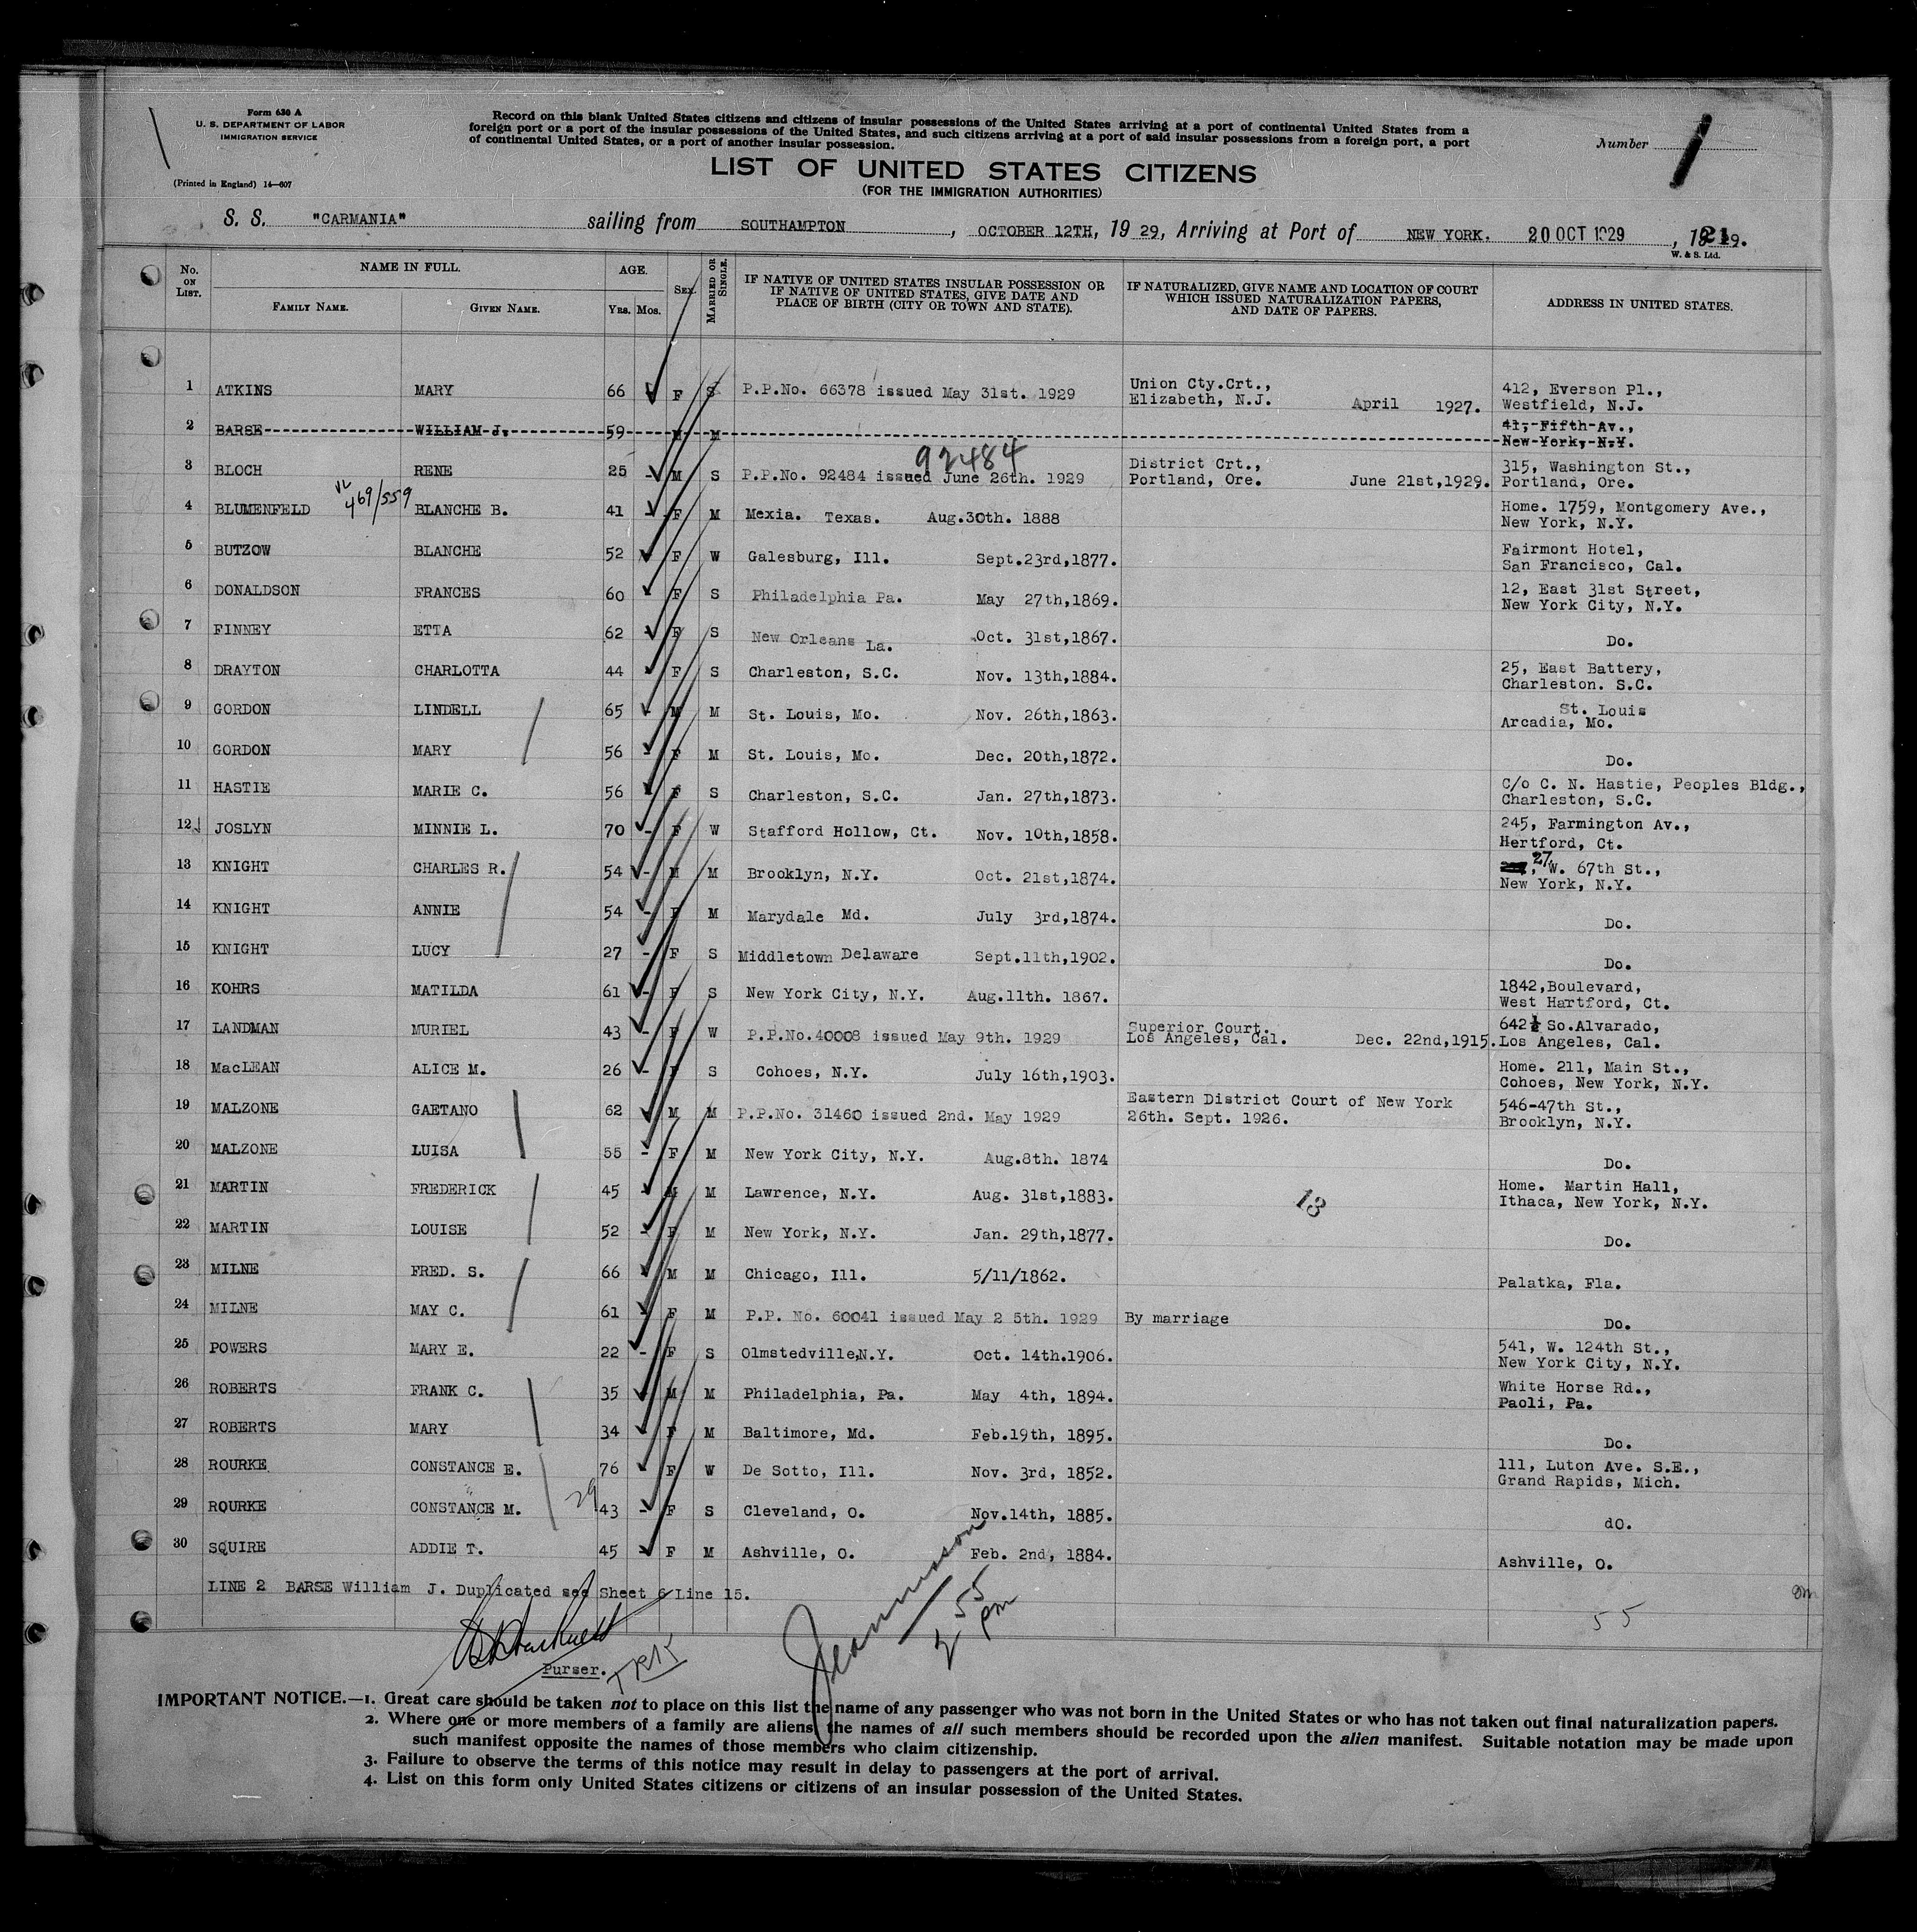 Form 630 A
U. S. DEPARTMENT OF LABOR
IMMIGRATION SERVICE
(Printed in England) 14—607
Record on this blank United States citizens and citizens of insular possessions of the United States arriving at a port of continental United States from a
foreign port or a port of the insular possessions of the United States, and such citizens arriving at a port of said insular possessions from a foreign port, a port
of continental United States, or a port of another insular possession.
Number 1
LIST OF UNITED STATES CITIZENS
(FOR THE IMMIGRATION AUTHORITIES)
S. S. "CARMANIA" sailing from SOUTHAMPTON, OCTOBER 12TH, 19 29, Arriving at Port of NEW YORK. 20 OCT 1929
W. & S. Ltd.
No. ON LIST. NAME IN FULL. FAMILY NAME. GIVEN NAME. AGE. YRS. MOS. SEX. MARRIED OR SINGLE. IF NATIVE OF UNITED STATES INSULAR POSSESSION OR IF NATIVE OF UNITED STATES, GIVE DATE AND PLACE OF BIRTH (CITY OR TOWN AND STATE). IF NATURALIZED, GIVE NAME AND LOCATION OF COURT WHICH ISSUED NATURALIZATION PAPERS, AND DATE OF PAPERS. ADDRESS IN UNITED STATES.
1 ATKINS MARY 66 F S P.P.No. 66378 issued May 31st. 1929 Union Cty.Crt., Elizabeth, N.J. April 1927. 412, Everson Pl., Westfield, N.J.
2 BARSE WILLIAM J. 59 M M 41, Fifth Av., New York, N.Y.
92484
3 BLOCH RENE 25 - M S P.P.No. 92484 issued June 26th. 1929 District Crt., Portland, Ore. June 21st,1929. 315, Washington St., Portland, Ore.
4 BLUMENFELD 469/559 BLANCHE B. 41 - F M Mexia. Texas. Aug.30th. 1888 Home. 1759, Montgomery Ave., New York, N.Y.
5 BUTZOW BLANCHE 52 F W Galesburg, Ill. Sept.23rd,1877. Fairmont Hotel, San Francisco, Cal.
6 DONALDSON FRANCES 60 - F S Philadelphia Pa. May 27th,1869. 12, East 31st Street, New York City, N.Y.
7 FINNEY ETTA 62 - F S New Orleans La. Oct. 31st,1867. Do.
8 DRAYTON CHARLOTTA 44 - F S Charleston, S.C. Nov. 13th,1884. 25, East Battery, Charleston. S.C.
9 GORDON LINDELL 65 - M M St. Louis, Mo. Nov. 26th,1863. St. Louis Arcadia, Mo.
10 GORDON MARY 56 - F M St. Louis, Mo. Dec. 20th,1872. Do.
11 HASTIE MARIE C. 56 - F S Charleston, S.C. Jan. 27th,1873. C/o C. N. Hastie, Peoples Bldg., Charleston, S.C.
12 JOSLYN MINNIE L. 70 - F W Stafford Hollow, Ct. Nov. 10th,1858. 245, Farmington Av., Hertford, Ct.
13 KNIGHT CHARLES R. 54 - M M Brooklyn, N.Y. Oct. 21st,1874. 27, W. 67th St., New York, N.Y.
14 KNIGHT ANNIE 54 - F M Marydale Md. July 3rd,1874. Do.
15 KNIGHT LUCY 27 - F S Middletown Delaware Sept.11th,1902. Do.
16 KOHRS MATILDA 61 - F S New York City, N.Y. Aug.11th. 1867. 1842,Boulevard, West Hartford, Ct.
17 LANDMAN MURIEL 43 - F W P.P.No.40008 issued May 9th. 1929 Superior Court. Los Angeles, Cal. Dec. 22nd,1915. 642½ So.Alvarado, Los Angeles, Cal.
18 MacLEAN ALICE M. 26 - F S Cohoes, N.Y. July 16th,1903. Home. 211, Main St., Cohoes, New York, N.Y.
19 MALZONE GAETANO 62 - M M P.P.No. 31460 issued 2nd. May 1929 Eastern District Court of New York 26th. Sept. 1926. 546-47th St., Brooklyn, N.Y.
20 MALZONE LUISA 55 - F M New York City, N.Y. Aug.8th. 1874 Do.
21 MARTIN FREDERICK 45 - M M Lawrence, N.Y. Aug. 31st,1883. 13 Home. Martin Hall, Ithaca, New York, N.Y.
22 MARTIN LOUISE 52 - F M New York, N.Y. Jan. 29th,1877. Do.
23 MILNE FRED. S. 66 M M Chicago, Ill. 5/11/1862. Palatka, Fla.
24 MILNE MAY C. 61 - F M P.P. No. 60041 issued May 2 5th. 1929 By marriage Do.
25 POWERS MARY E. 22 - F S Olmstedville,N.Y. Oct. 14th.1906. 541, W. 124th St., New York City, N.Y.
26 ROBERTS FRANK C. 35 - M M Philadelphia, Pa. May 4th, 1894. White Horse Rd., Paoli, Pa.
27 ROBERTS MARY 34 - F M Baltimore, Md. Feb.19th, 1895. Do.
28 ROURKE CONSTANCE E. 76 - F W De Sotto, Ill. Nov. 3rd, 1852. 111, Luton Ave. S.E., Grand Rapids, Mich.
29 ROURKE CONSTANCE M. 29 43 - F S Cleveland, O. Nov.14th, 1885. dO.
30 SQUIRE ADDIE T. 45 - F M Ashville, O. Feb. 2nd, 1884. Ashville, O.
LINE 2 BARSE William J. Duplicated see Sheet 6 Line 15.
55
2 55 pm
Purser.
IMPORTANT NOTICE.—1. Great care should be taken not to place on this list the name of any passenger who was not born in the United States or who has not taken out final naturalization papers.
2. Where one or more members of a family are aliens, the names of all such members should be recorded upon the alien manifest. Suitable notation may be made upon
such manifest opposite the names of those members who claim citizenship.
3. Failure to observe the terms of this notice may result in delay to passengers at the port of arrival.
4. List on this form only United States citizens or citizens of an insular possession of the United States.